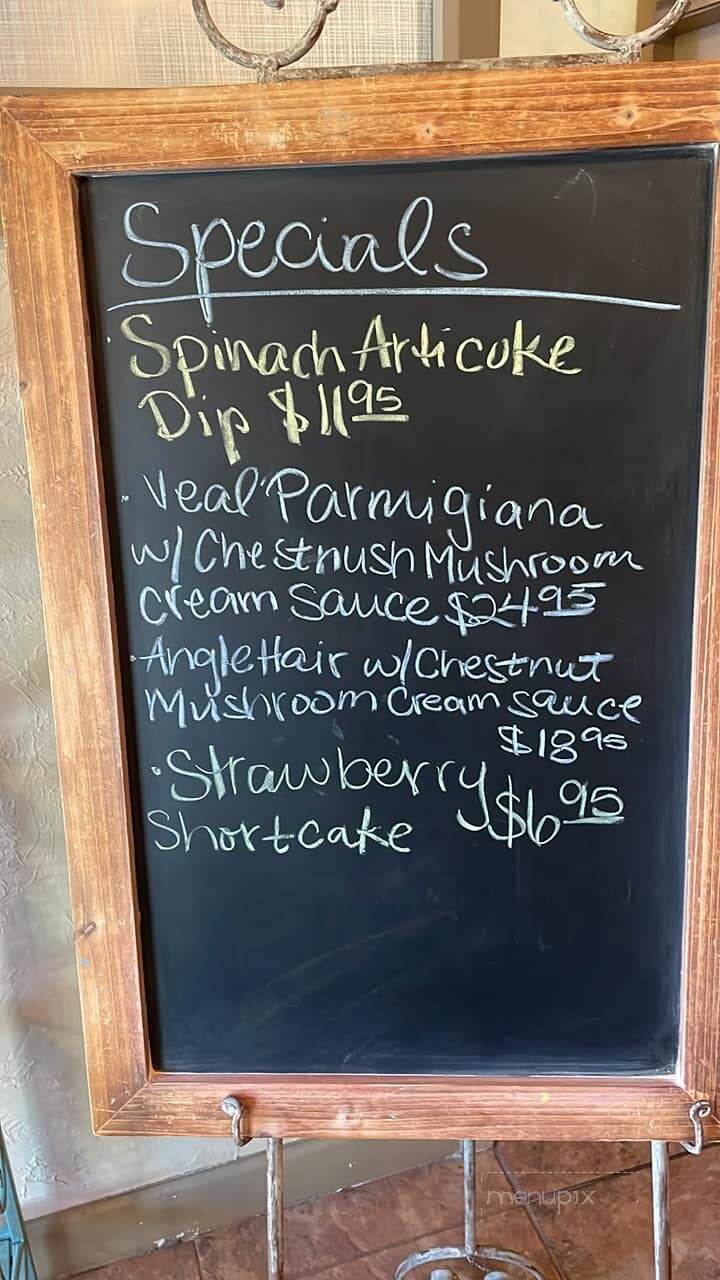 Specials
· Spinach Articoke
Dip $11 95
· Veal Parmigiana
w/ Chestnush Mushroom
Cream Sauce $24 95
· Angle Hair w/ Chestnut
Mushroom Cream Sauce
$18 95
· Strawberry
Shortcake $6 95
menupix